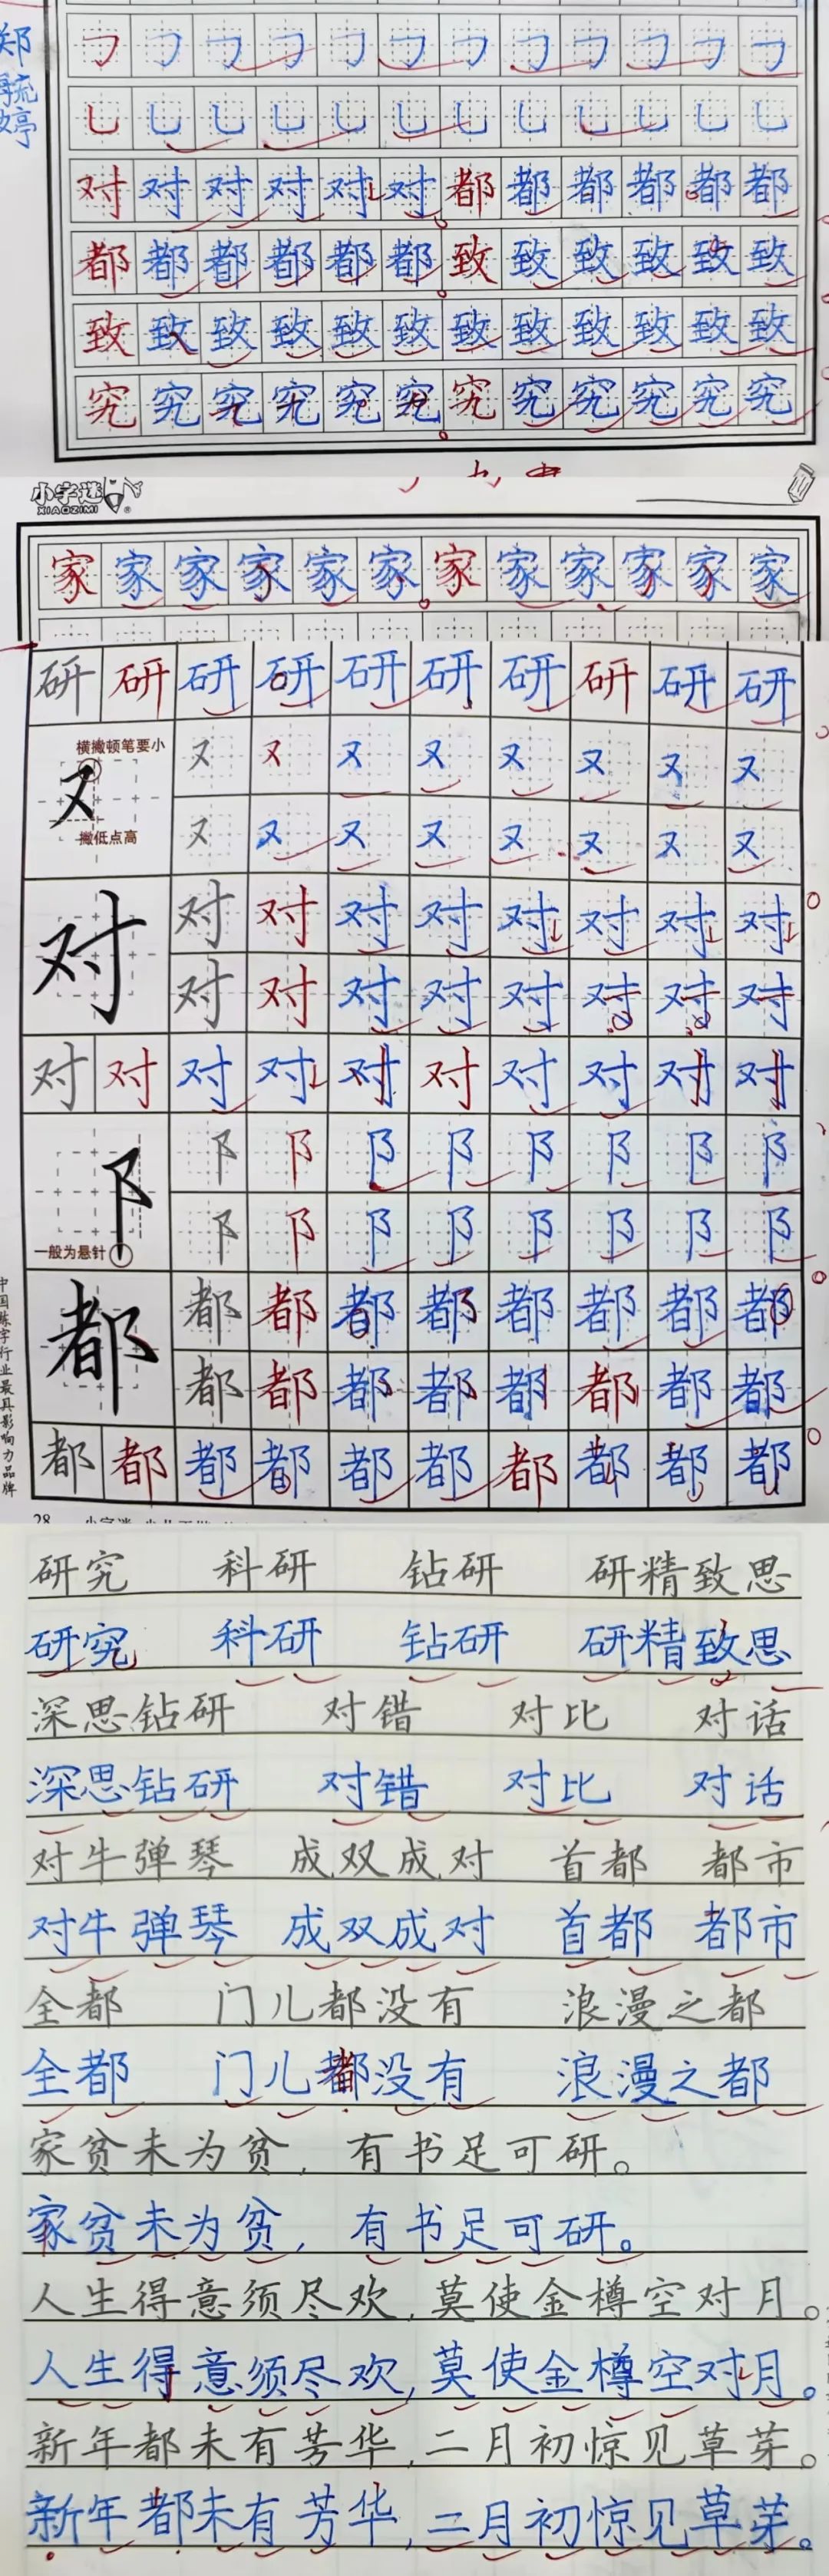 郑
毓
婷
㇆㇆㇆㇆㇆㇆㇆㇆㇆㇆㇆㇆
乚乚乚乚乚乚乚乚乚乚乚乚
对对对对对对都都都都都都
都都都都都都致致致致致致
致致致致致致致致致致致致
究究究究究究究究究究究究
小字迷
XIAOZIMI
家家家家家家家家家家家家
研研研研研研研研研研
横撇顿笔要小
又又又又又又又又又
撇低点高
又又又又又又又又
对对对对对对对对对
对对对对对对对对
对对对对对对对对对对
阝阝阝阝阝阝阝阝阝
一般为悬针
阝阝阝阝阝阝阝阝
都都都都都都都都都
都都都都都都都都
都都都都都都都都都都
中国练字行业最具影响力品牌
28
研究 科研 钻研 研精致思
研究 科研 钻研 研精致思
深思钻研 对错 对比 对话
深思钻研 对错 对比 对话
对牛弹琴 成双成对 首都 都市
对牛弹琴 成双成对 首都 都市
全都 门儿都没有 浪漫之都
全都 门儿都没有 浪漫之都
家贫未为贫，有书足可研。
家贫未为贫，有书足可研。
人生得意须尽欢，莫使金樽空对月。
人生得意须尽欢，莫使金樽空对月。
新年都未有芳华，二月初惊见草芽。
新年都未有芳华，二月初惊见草芽。